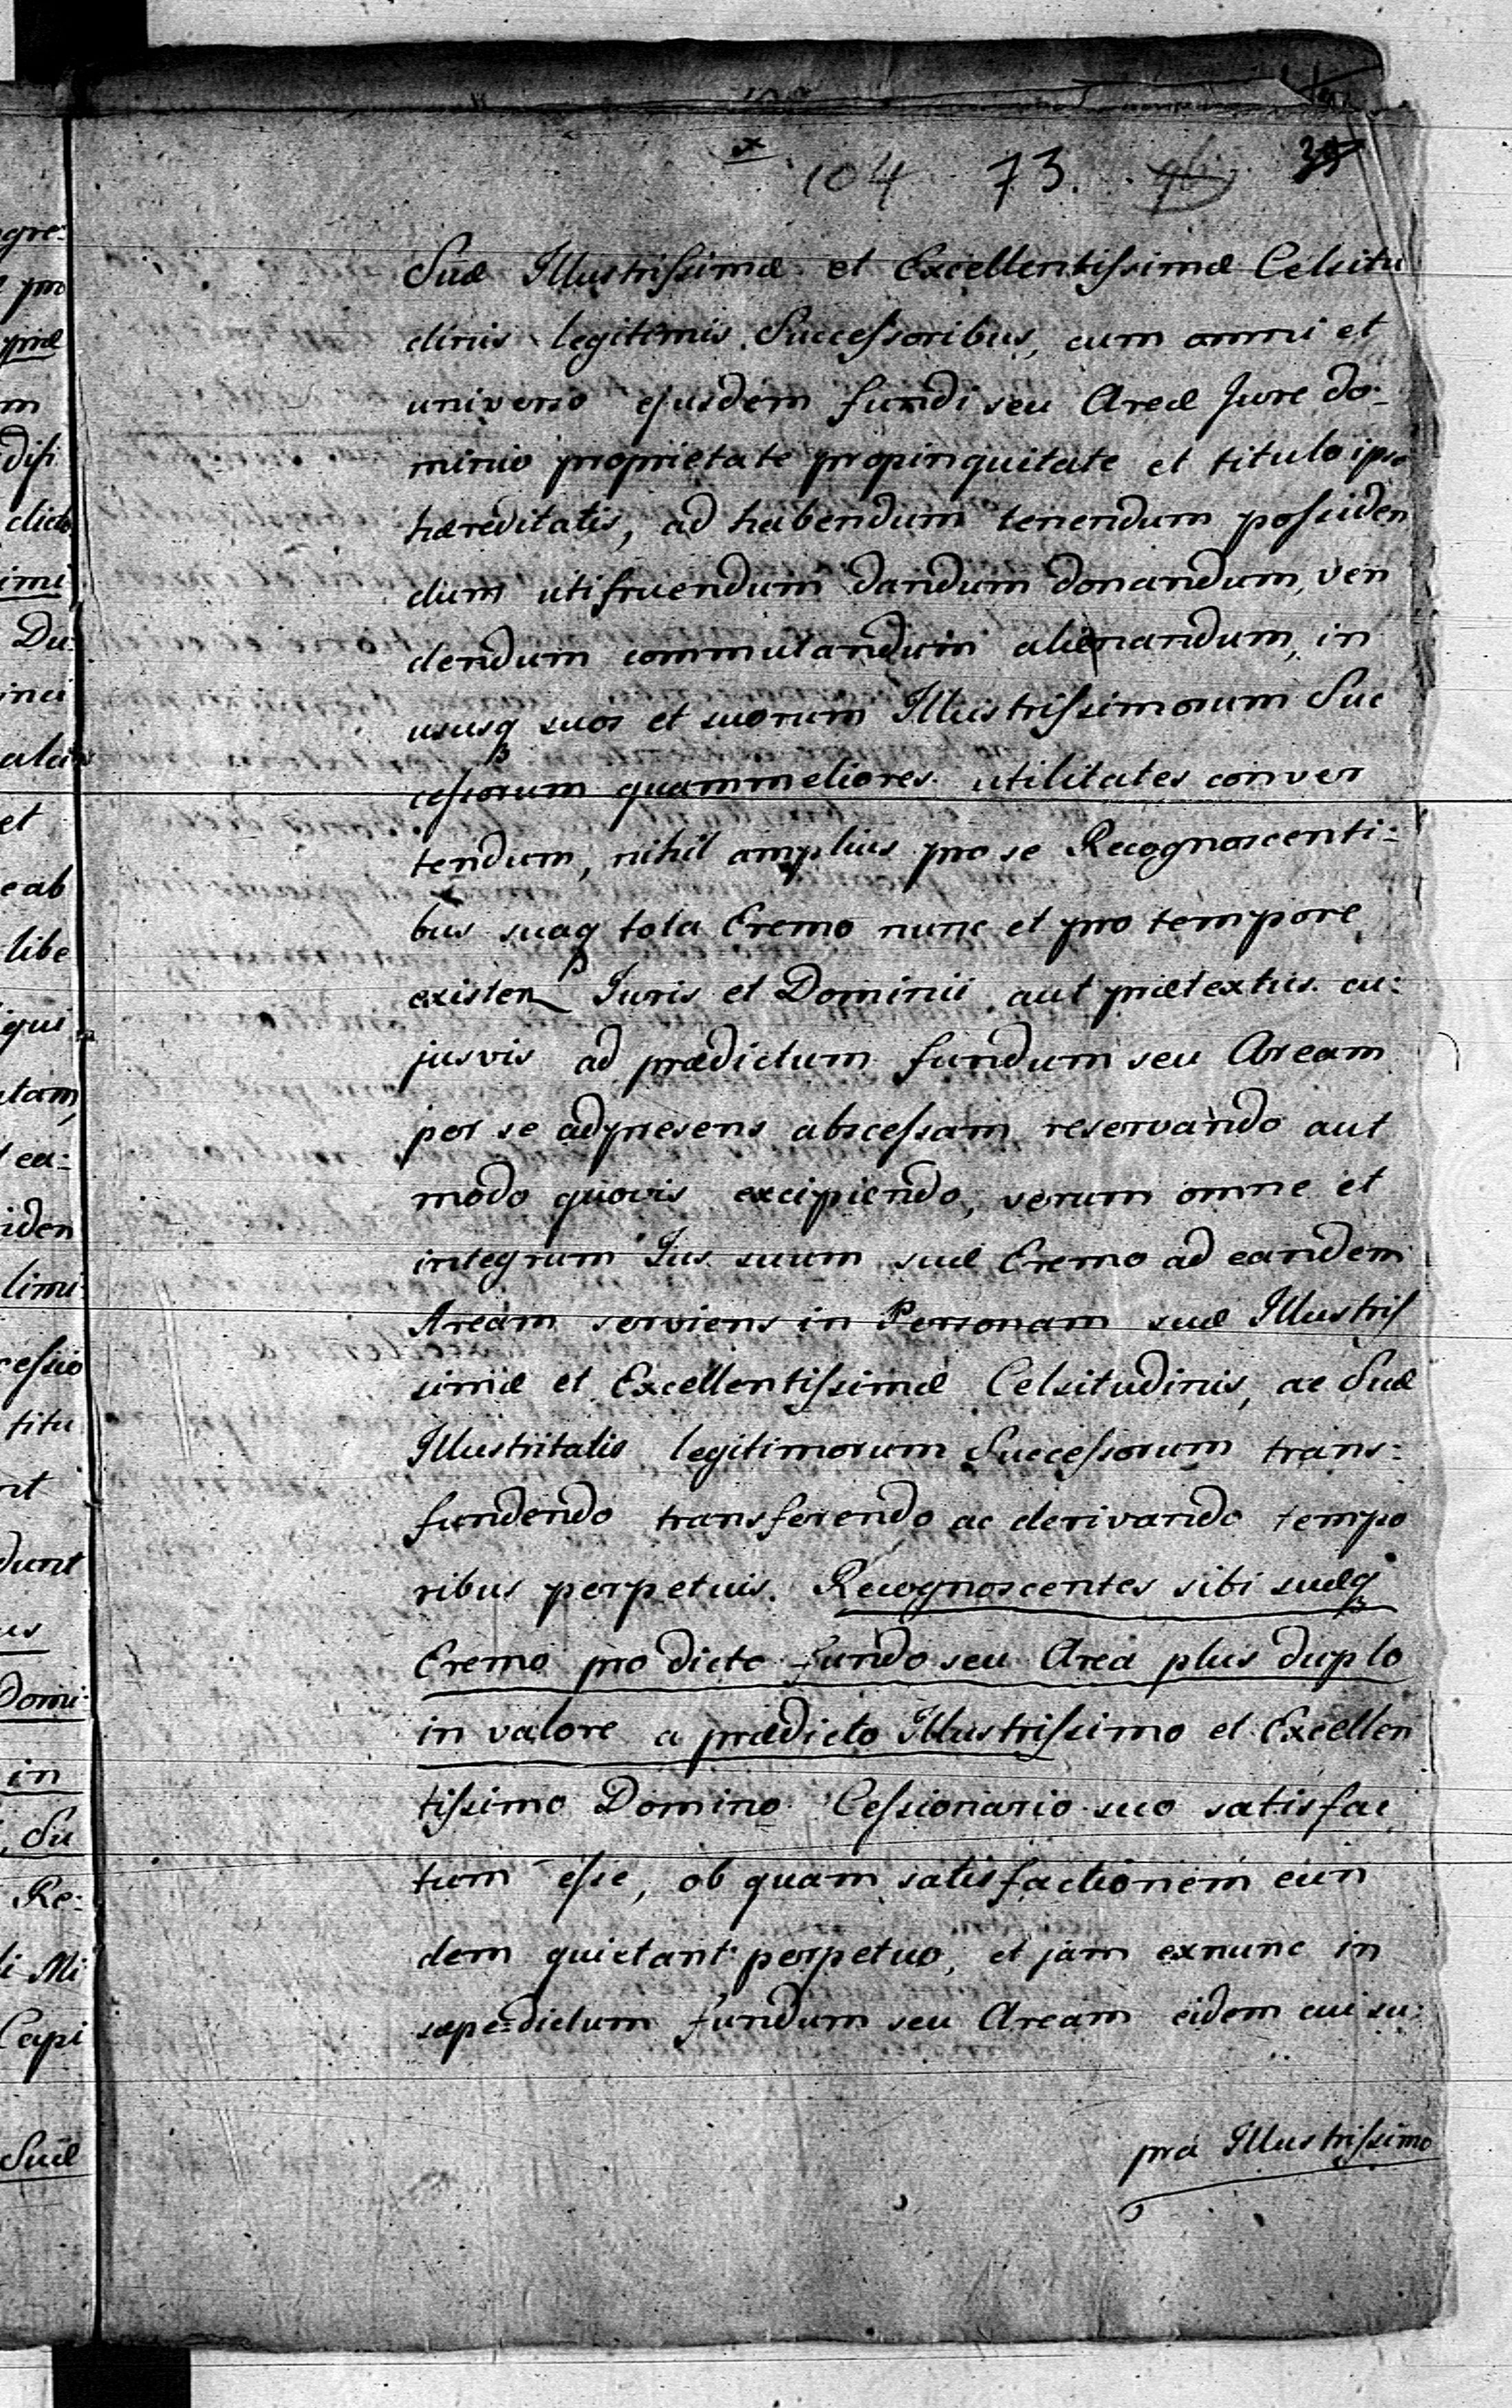 104 73. 39
Suæ Illustrissimæ et Excellentissimæ Celsitu
dinis legitimis Successoribus, cum omni et
universo ejusdem fundi seu Areæ Jure do-
minio proprietate propinquitate et titulo ipso
hæreditatis, ad habendum tenendum possiden
dum utifruendum dandum donandum, ven
dendum commutandum alienandum, in
ususq suos et suorum Illustrissimorum Suc
cessorum quammeliores utilitates conver
tendum, nihil amplius pro se Recognoscenti:
bus suaq tota Eremo nunc et pro tempore
existen Juris et Dominii aut prætextus cu:
jusvis ad prædictum fundum seu Aream
per se adpresens abscessam reservando aut
modo quovis excipiendo, verum omne et
integrum Jus suum suæ Eremo ad eandem
Aream serviens in Personam suæ Illustris
simæ et Excellentissimæ Celsitudinis, ac Suæ
Illustritatis legitimorum Successorum trans:
fundendo transferendo ac derivando tempo
ribus perpetuis. Recognoscentes sibi suæq
Eremo pro dicto fundo seu Area plus duplo
in valore a prædicto Illustrissimo et Excellen
tissimo Domino Cessionario suo satisfac
tum esse, ob quam satisfactionem eun
dem quietant perpetuo, et jam exnunc in
sæpe=dictum fundum seu Aream eidem cui su:
pra Illustrissimo
gre:
pro
præ
m
dissi
dicto
imi
Du:
et
eab
libe
qui
utam,
ea:
iden
limi:
cessio
titu
nt
dunt
us
Domi:
in
Su
Re:
Mi
Capi
Suæ